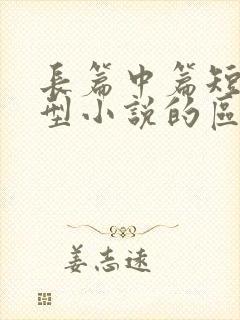 長篇中篇短
型小說的區
姜志遠